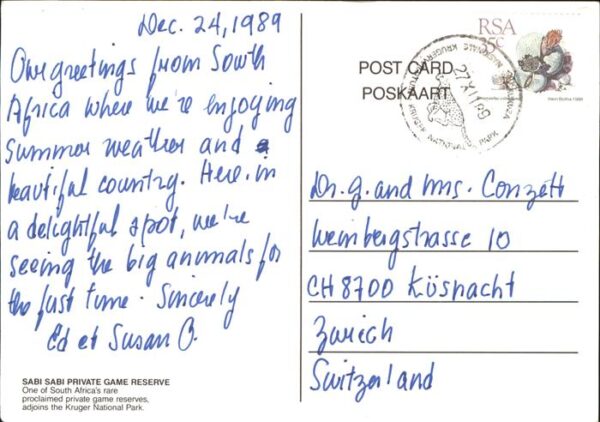 Dec. 24, 1989
Our greetings from South
Africa where we're enjoying
summer weather and a
beautiful country. Here, in
a delightful spot, we're
seeing the big animals for
the first time. Sincerely
Ed et Susan O.
SABI SABI PRIVATE GAME RESERVE
One of South Africa's rare
proclaimed private game reserves,
adjoins the Kruger National Park.
POST CARD
POSKAART
RSA
35c
KRUGER NATIONAL PARK
Dr. G. and Mrs. Conzett
Weinbergstrasse 10
CH 8700 Küsnacht
Zurich
Switzerland